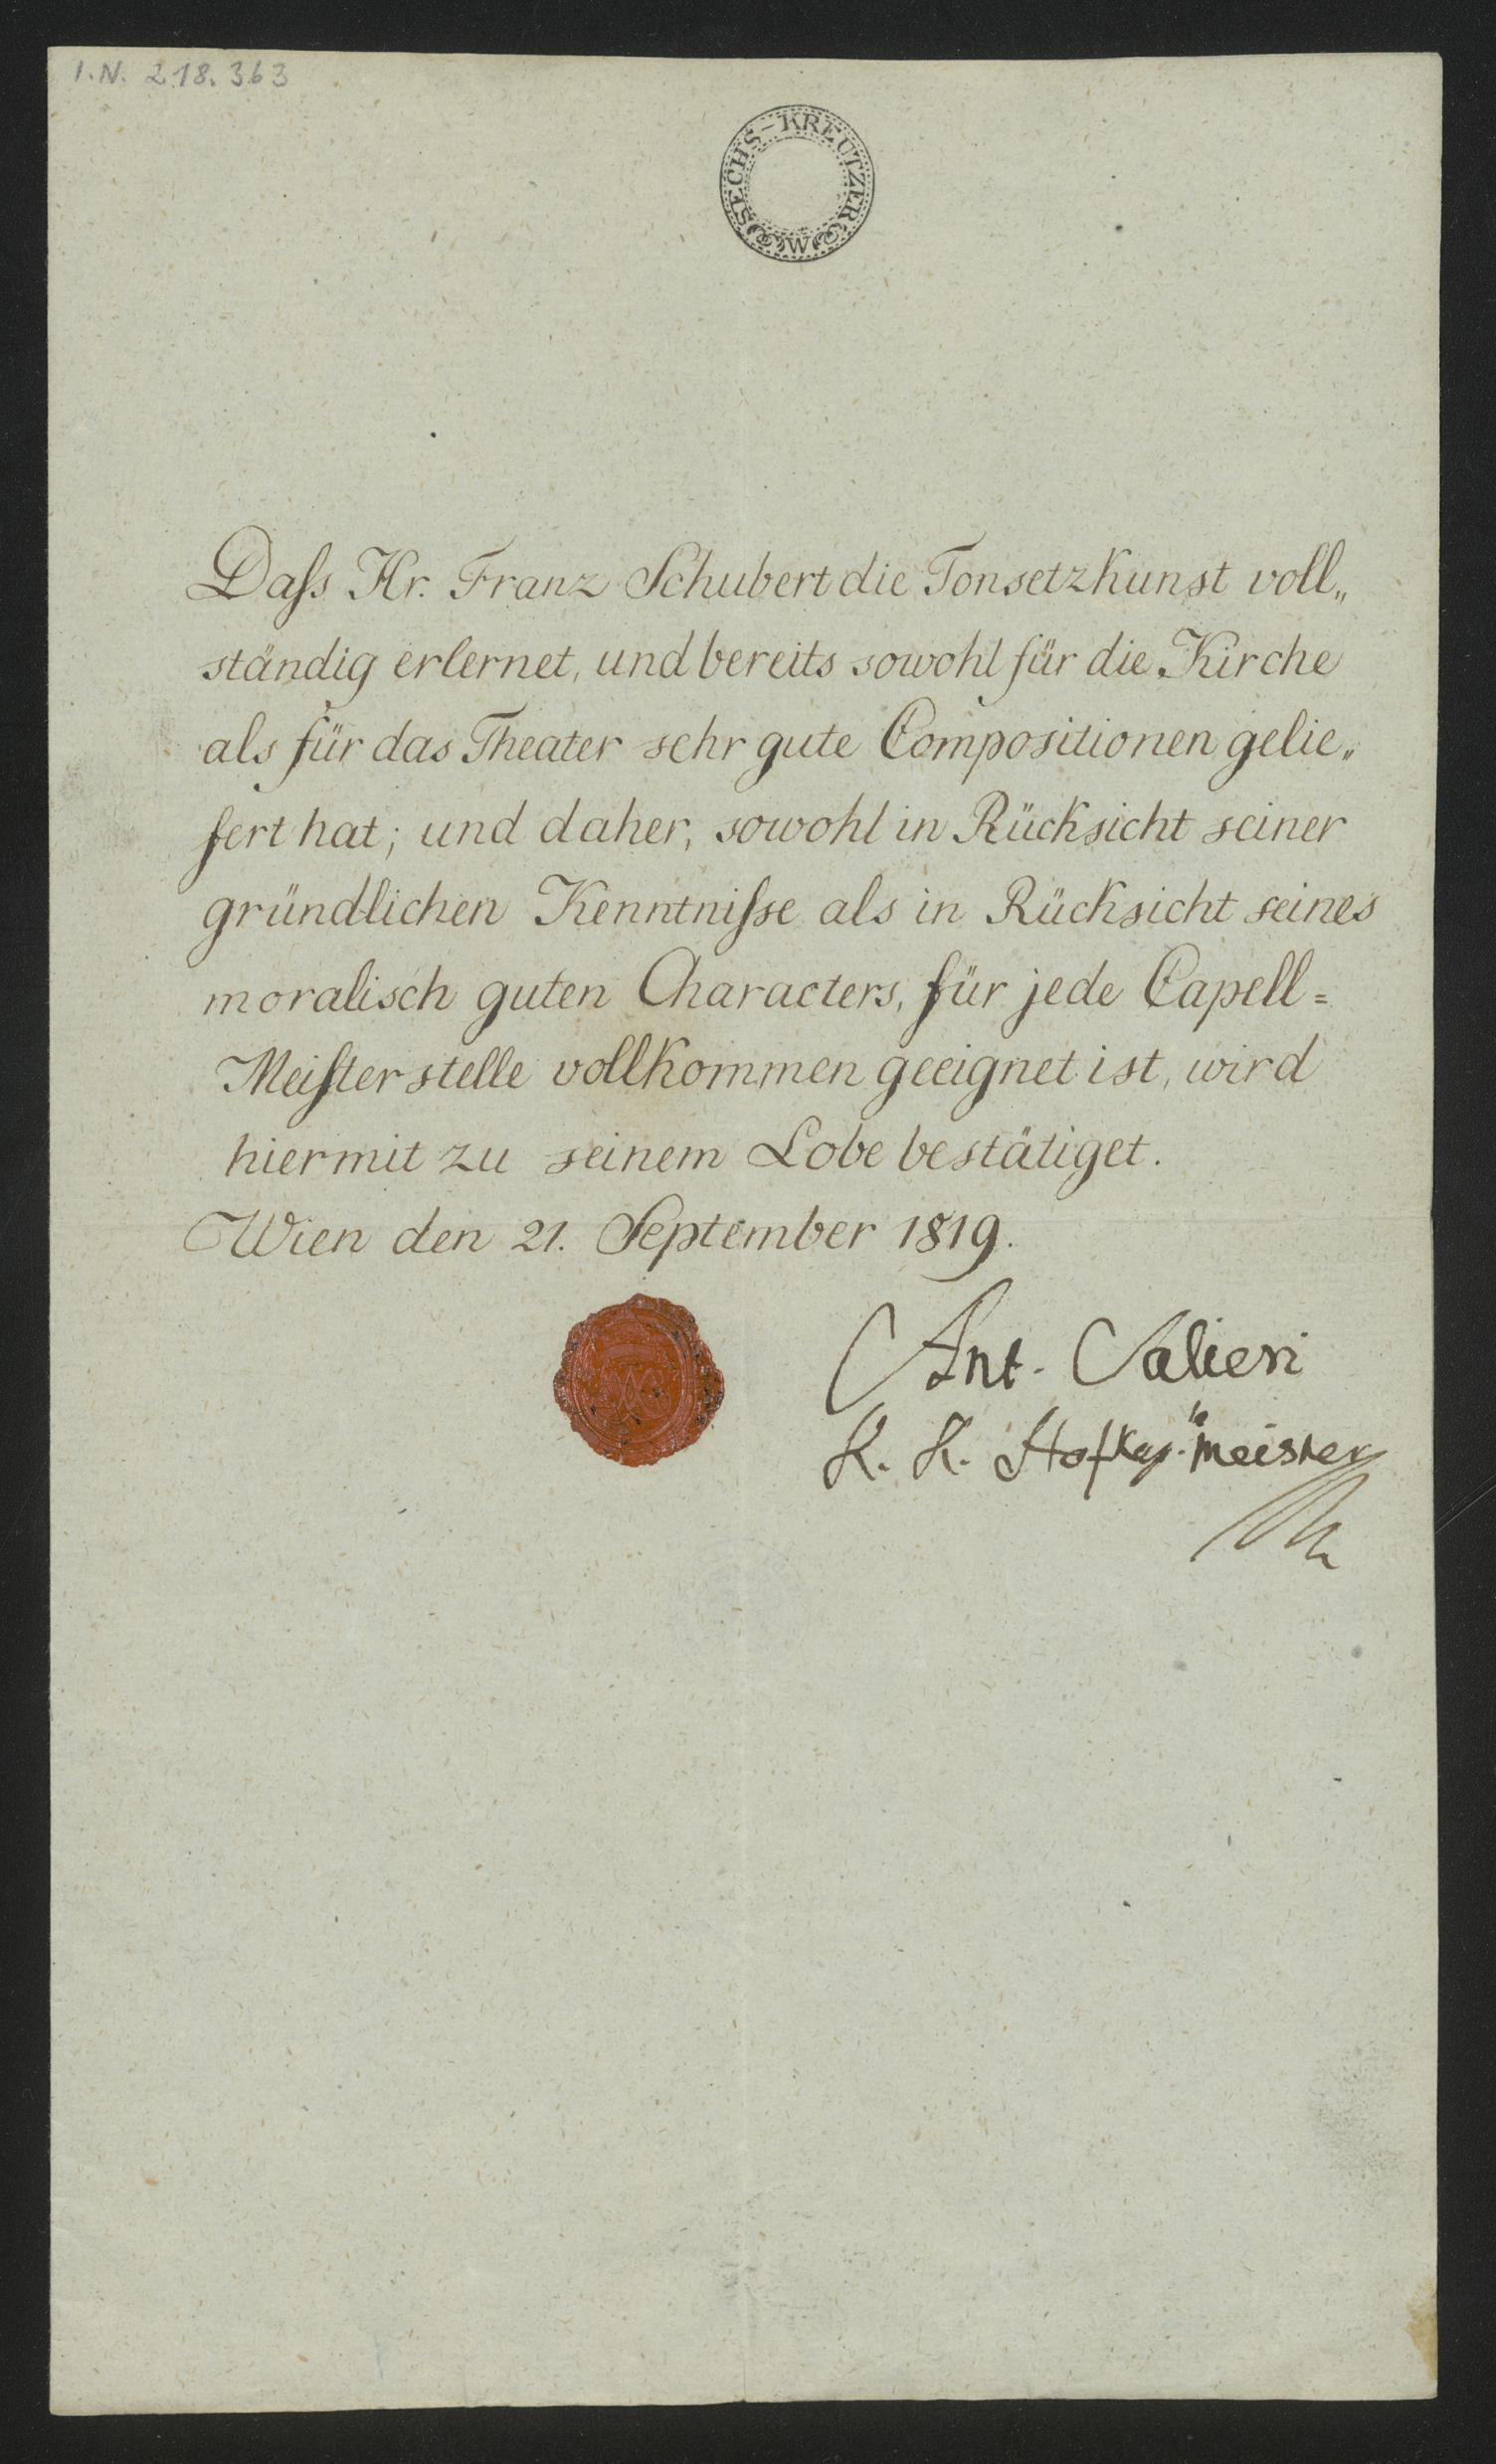 I.N. 218.363
SECHS-KREUTZER W
Daſs Hr. Franz Schubert die Tonsetzkunst voll„
ständig erlernet, und bereits sowohl für die Kirche
als für das Theater sehr gute Compositionen gelie„
fert hat; und daher, sowohl in Rücksicht seiner
gründlichen Kenntniſse als in Rücksicht seines
moralisch guten Characters, für jede Capell=
Meiſterstelle vollkommen geeignet ist, wird
hiermit zu seinem Lobe bestätiget.
Wien den 21. September 1819.
Ant. Salieri
K. K. Hofkap. meister